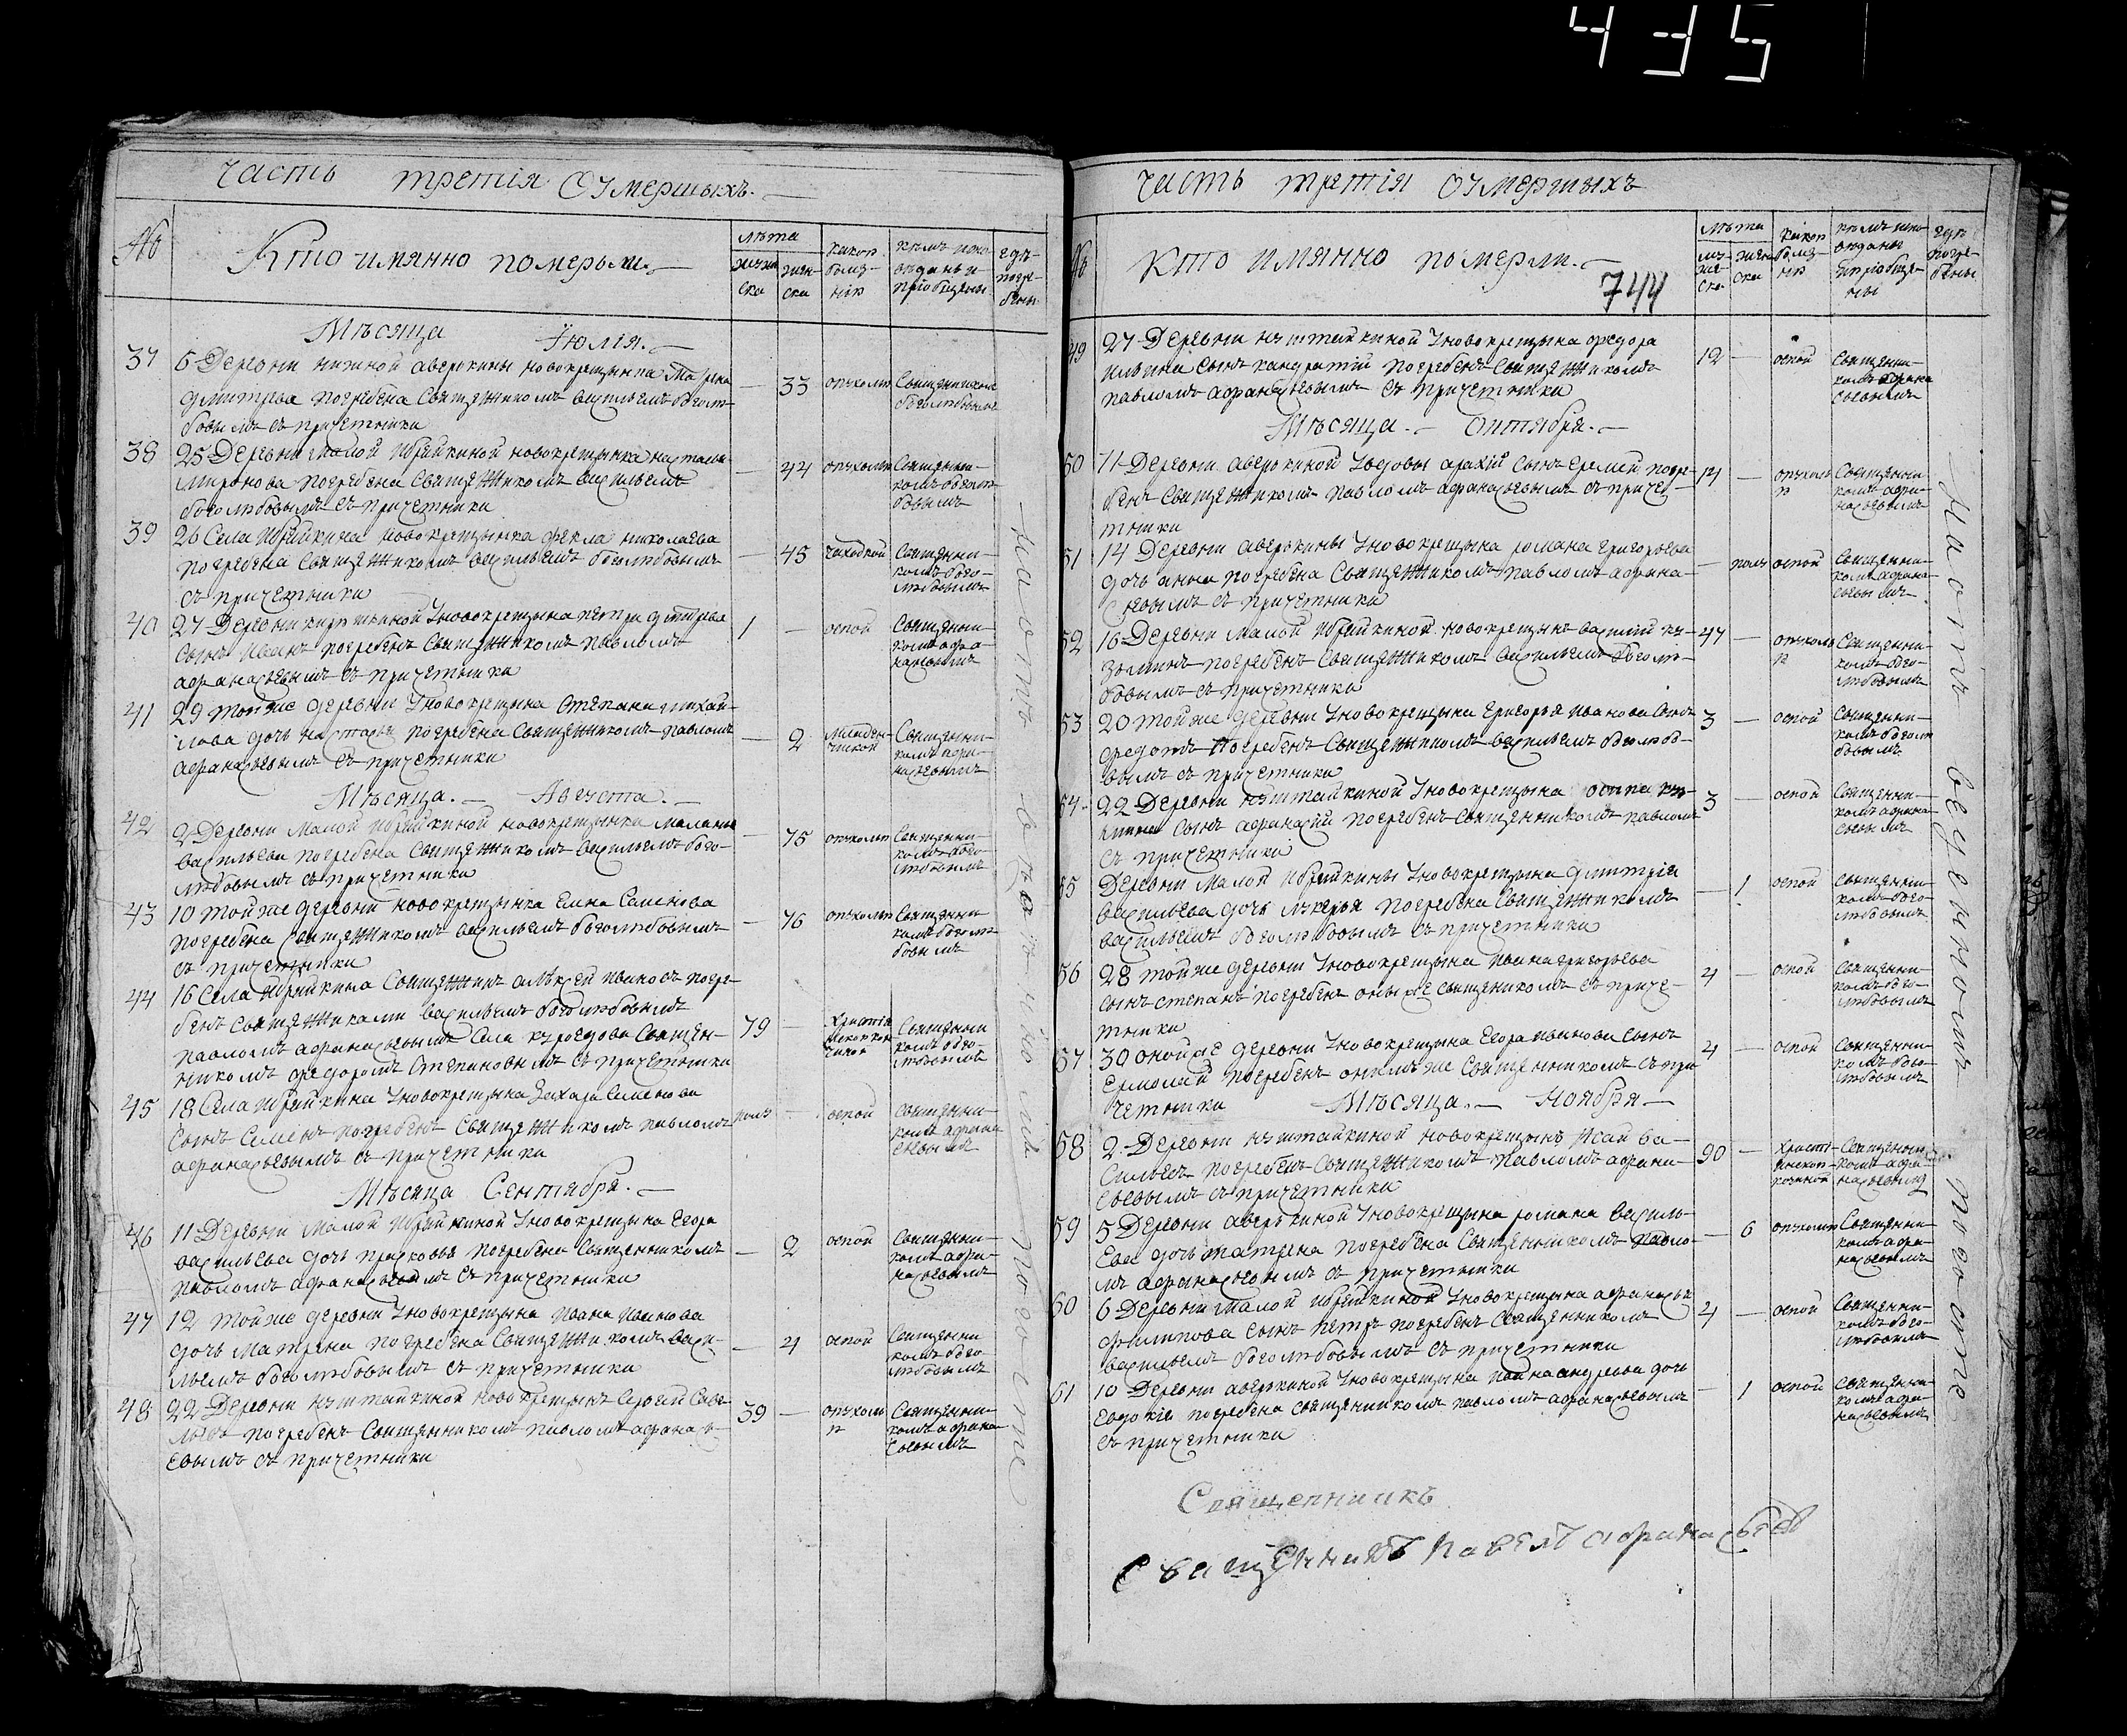 435
Часть третiя Оумершыхъ.
№
Кто имянно померьли.
лѣта
муже
ска
жен-
ска
какою
болѣз-
нiю
кѣмъ испо-
веданы и
прiобщены
гдѣ
погре-
бены
Мѣсяца Iюлiя.
37 6 Деревни нижной аверкины новокрещынка
дмитрева погребена Священникомъ васильемъ боголю-
бовымъ съ причетники
— 33 опухолью Священникомъ
боголюбовымъ
38 25 Деревни малой Ибряйкиной новокрещынка настасья
миронова погребена Священникомъ васильемъ
боголюбовымъ съ причетники
— 44 опухолью Священни-
комъ боголю-
бовымъ
39 26 Села Ибряйкина новокрещынка фекла николаева
погребена Священникомъ васильемъ боголюбовымъ
съ причетники
— 45 чахоткой Священни-
комъ бого-
любовымъ
40 27 Деревни У новокрещына петра дмитрева
Сынъ Иванъ погребенъ Священникомъ павломъ
афанасьевымъ съ причетники
1 — оспой Священни-
комъ афа-
насьевымъ
41 29 Той же деревни У новокрещына Степана михай-
лова дочь настасья погребена Священникомъ павломъ
афанасьевымъ съ причетники
— 2 младен-
ческой Священни-
комъ афа-
насьевымъ
Мѣсяца. Августа.
42 2 Деревни Малой Ибряйкиной новокрещынка маланья
васильева погребена Священникомъ васильемъ бого-
любовымъ съ причетники
— 75 опухолью Священни-
комъ бого-
любовымъ
43 10 Той же деревни новокрещынка Елена Семенова
погребена Священникомъ васильемъ боголюбовымъ
съ причетники
— 76 опухолью Священни-
комъ боголю-
бовымъ
44 16 Села Ибряйкина Священникъ алѣксей Ивановъ погре-
бенъ Священниками васильемъ боголюбовымъ
павломъ афанасьевымъ Села Священ-
никомъ федоромъ Степановымъ съ причетники
79 — Священни
комъ бого-
любовымъ
45 18 Села Ибряйкина У новокрещына Захара Семенова
Сынъ Семенъ погребенъ Священникомъ павломъ
афанасьевымъ съ причетники
полъ — оспой Священни-
комъ афана
сьевымъ
Мѣсяца Сентября.
46 11 Деревни Малой Ибряйкиной У новокрещына Егора
васильева дочь прасковья погребена Священникомъ
павломъ афанасьевымъ съ причетники
— 2 оспой Священни-
комъ афа-
насьевымъ
47 12 Той же деревни У новокрещына Ивана Иванова
дочь Матрена погребена Священникомъ васи-
льемъ боголюбовымъ съ причетники
— 4 оспой Священни
комъ бого-
любовымъ
48 22 Деревни нуштайкиной новокрещынъ Сергей Саве-
льевъ погребенъ Священникомъ павломъ афанась-
евымъ съ причетники
39 — опухоль
ю Священни-
комъ афана
сьевымъ
На отведенномъ погосте
Часть третiя Оумершыхъ
№
Кто имянно померли.
744
лѣта
му-
же-
ска
жен
ска
какою
болѣз-
нiю
кѣмъ испо-
веданы
и прiобще-
ны
гдѣ
погре-
бены
49 27 Деревни нуштайкиной У новокрещына федора
Ильина Сынъ кандратiй погребенъ Священникомъ
павломъ афанасьевымъ съ причетники
12 — оспой Священни-
комъ афана
сьевымъ
Мѣсяца. Октября.
50 11 Деревни аверкиной Сынъ Еремей погре-
бенъ Священникомъ павломъ афанасьевымъ съ приче-
тники
14 — опухоль
ю Священни-
комъ афа-
насьевымъ
51 14 Деревни аверкины У новокрещына романа Григорьева
дочь анна погребена Священникомъ павломъ афана-
сьевымъ съ причетники
— полъ оспой Священни-
комъ афана-
сьевымъ
52 16 Деревни Малой Ибряйкиной новокрещынъ василiй ку-
зминъ погребенъ Священникомъ васильемъ боголю-
бовымъ съ причетники
47 — опухоль
ю Священни-
комъ бого-
любовымъ
53 20 Той же деревни У новокрещына Григорья Иванова Сынъ
федотъ погребенъ Священникомъ васильемъ боголюбо-
вымъ съ причетники
3 — оспой Священни-
комъ боголю
бовымъ
54 22 Деревни нуштайкиной У новокрещына осипа ку-
змина Сынъ афанасiй погребенъ Священникомъ павломъ
съ причетники
3 — оспой Священни-
комъ афана-
сьевымъ
55 Деревни Малой Ибряйкины У новокрещына дмитрiя
васильева дочь лукерья погребена Священникомъ
васильемъ боголюбовымъ съ причетники
— 1 оспой Священни-
комъ бого-
любовымъ
56 28 Той же деревни У новокрещына Ивана григорьева
сынъ степанъ погребенъ оным же Священикомъ съ приче-
тники
4 — оспой Священни-
комъ бого-
любовымъ
57 30 оной же деревни У новокрещына Егора Иванова Сынъ
Ермолай погребенъ онымъ же Священникомъ съ при
четники
4 — оспой Священни-
комъ бого-
любовымъ
Мѣсяца. Ноября
58 2 Деревни нуштайкиной новокрещынъ Исай ва-
сильевъ погребенъ Священникомъ павломъ афана-
сьевымъ съ причетники
90 — Священни
комъ афа-
насьевымъ
59 5 Деревни аверькиной У новокрещына романа василь-
ева дочь матрена погребена Священникомъ павло-
мъ афанасьевымъ съ причетники
— 6 опухолью Священни-
комъ афа-
насьевымъ
60 6 Деревни Малой Ибряйкиной У новокрещына афанасья
филипова Сынъ петръ погребенъ Священникомъ
васильемъ боголюбовымъ съ причетники
4 — оспой Священни-
комъ бого-
любовымъ
61 10 Деревни аверькиной У новокрещына Ивана андреева дочь
Евдокiя погребена священникомъ павломъ афанасьевымъ
съ причетники
— 1 оспой Священни-
комъ афа-
насьевымъ
На отъведенномъ погосте
Священникъ
Священникъ Павелъ Афанасьевъ